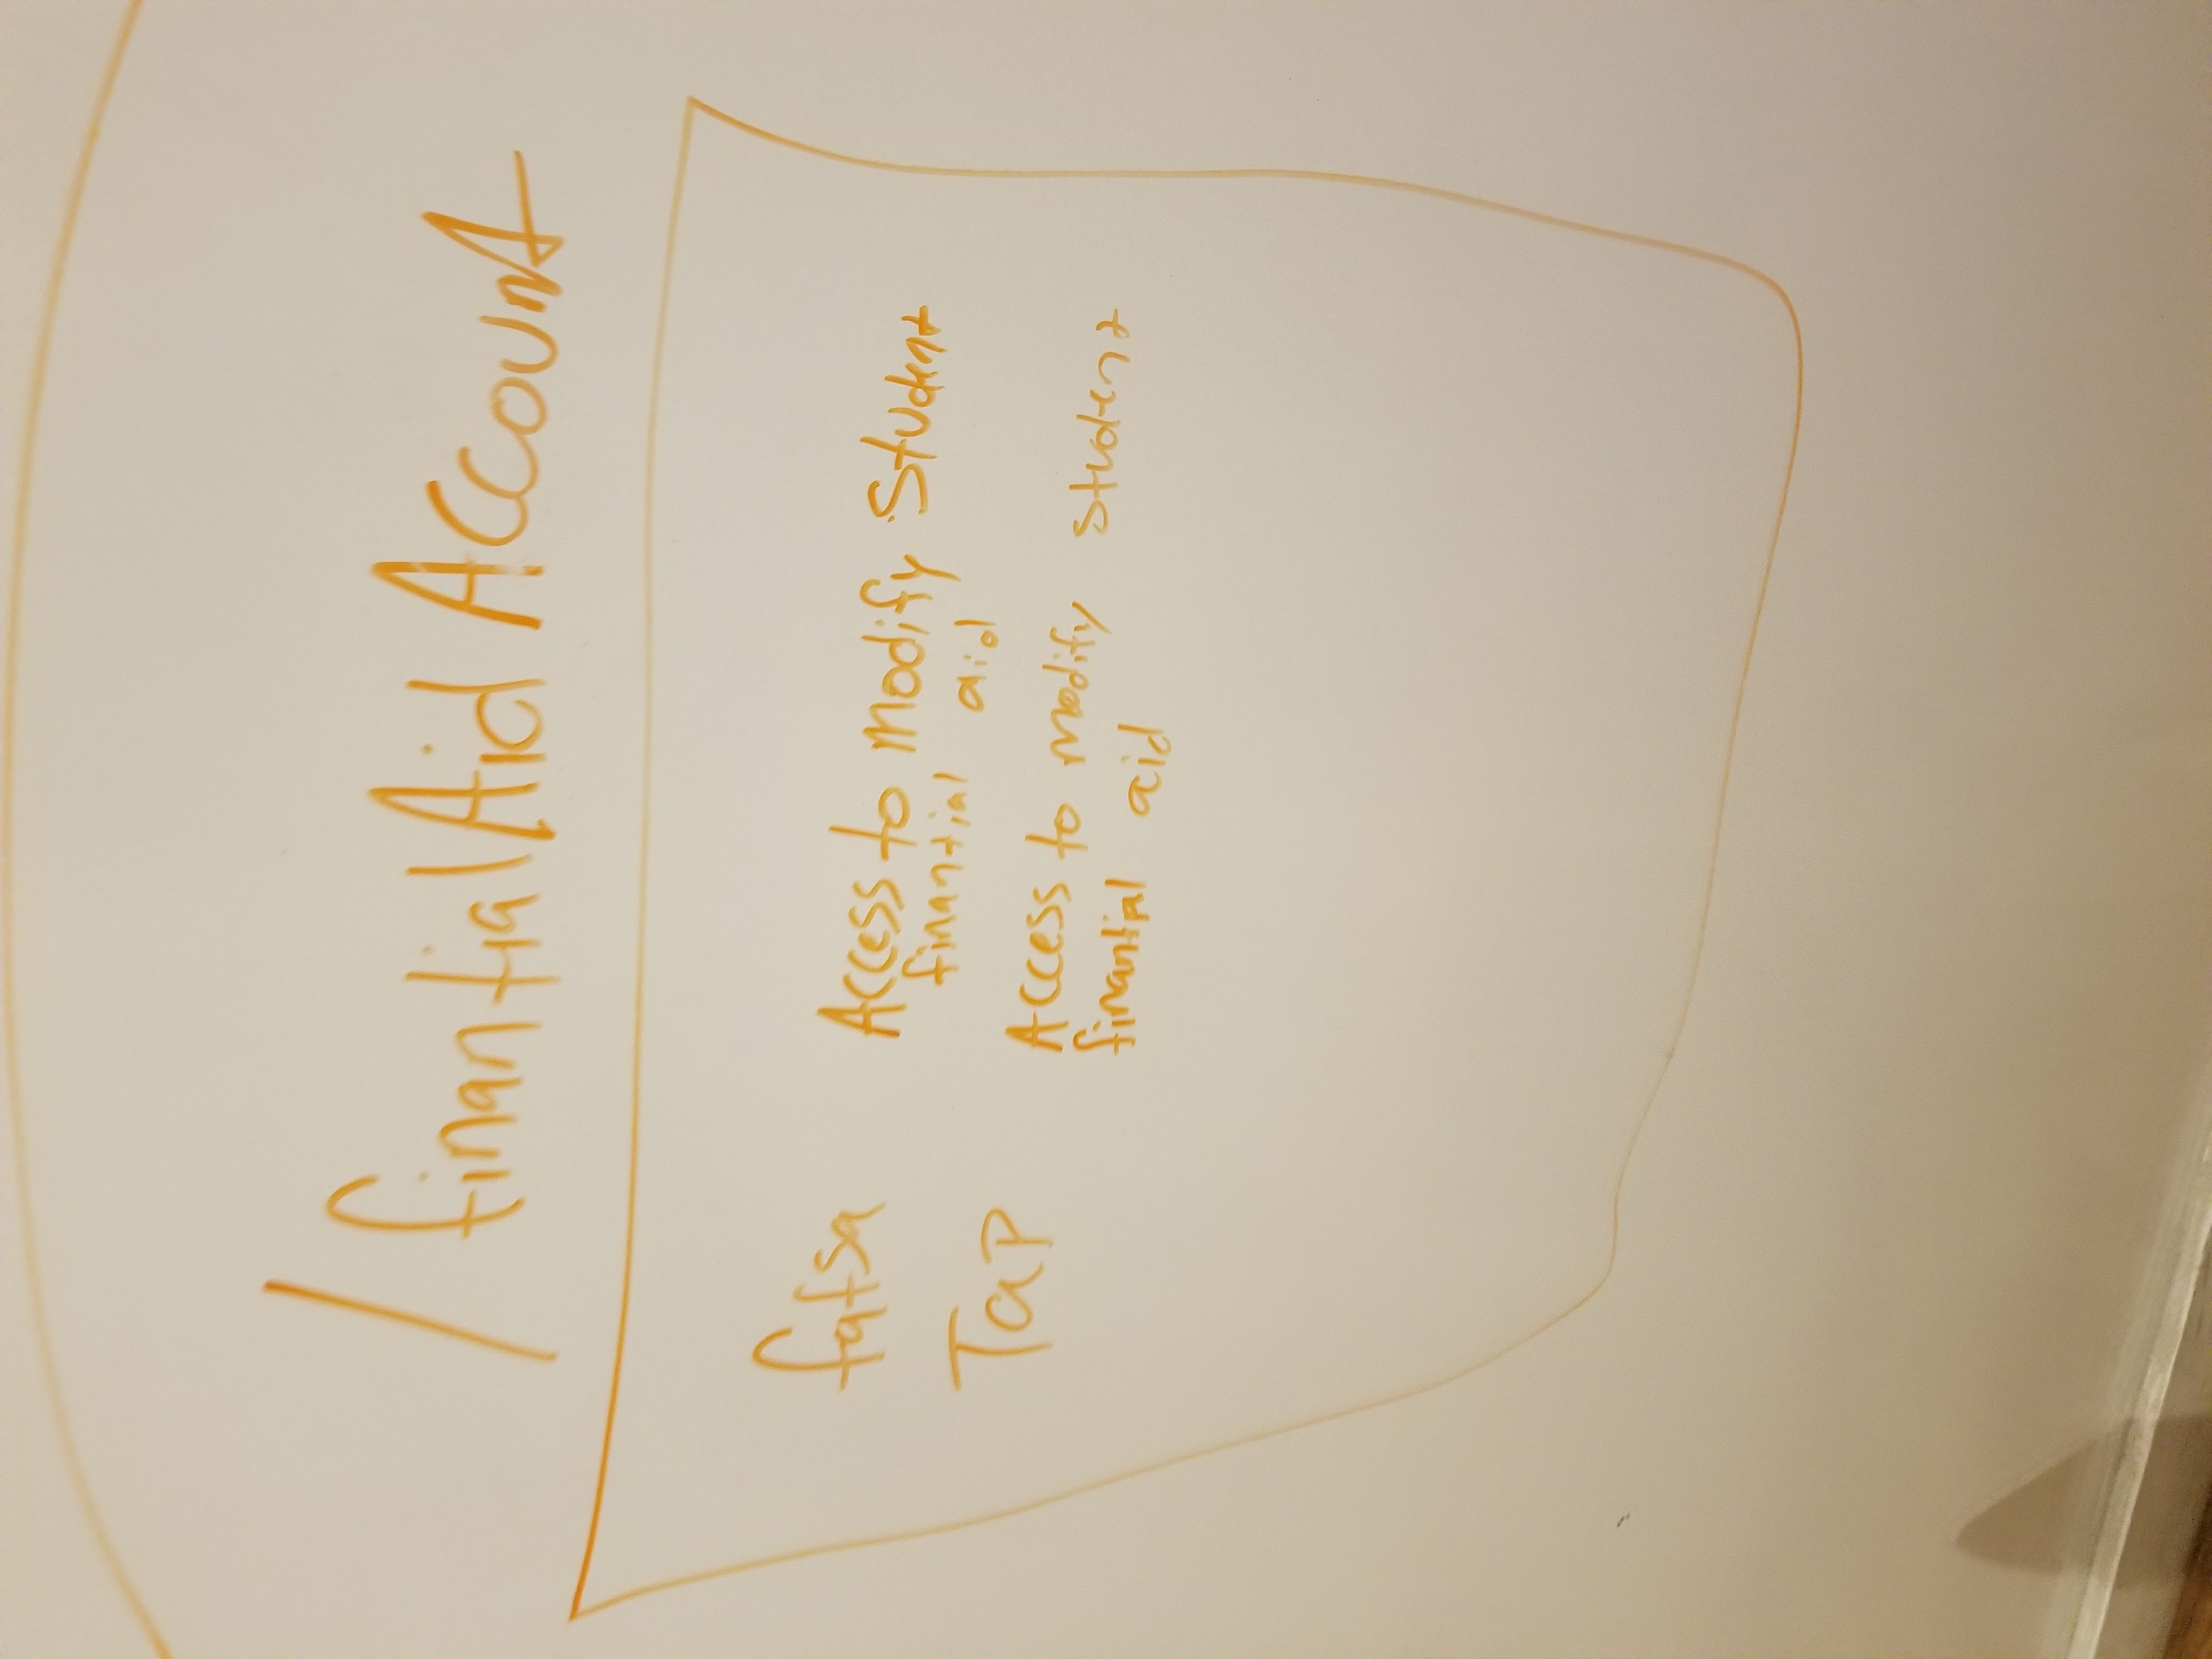 /finantialAid Account
fafsa Access to modify Student
finantial aid
Tap Access to modify student
finantial aid